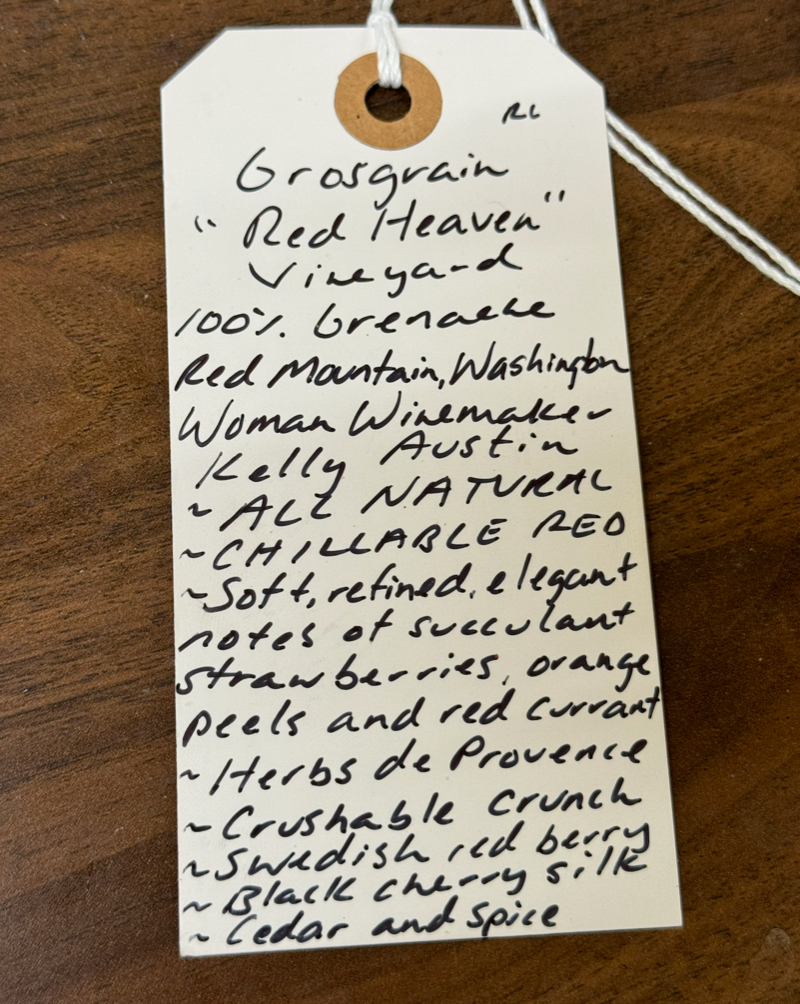 RL
Grosgrain
"Red Heaven"
Vineyard
100% Grenache
Red Mountain, Washington
Woman Winemaker
Kelly Austin
~ ALL NATURAL
~ CHILLABLE RED
~ Soft, refined, elegant
notes of succulant
strawberries, orange
peels and red currant
~ Herbs de Provence
~ Crushable crunch
~ Swedish red berry
~ Black cherry silk
~ Cedar and spice